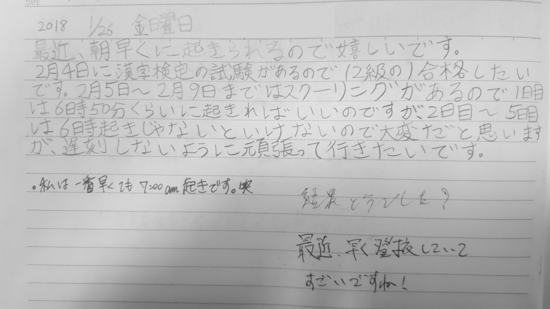 2018 1/26 金曜日
最近、朝早くに起きられるので嬉しいです。
2月4日に漢字検定の試験があるので(2級の)合格したい
です。2月5日〜2月9日まではスクーリングがあるので1日目
は6時50分くらいに起きればいいのですが、2日目〜5日目
は6時起きじゃないといけないので大変だと思います
が、遅刻しないように頑張って行きたいです。
・私は一番早くても7:00am起きです。笑
結果どうでした？
最近、早く登校していて
すごいですね！